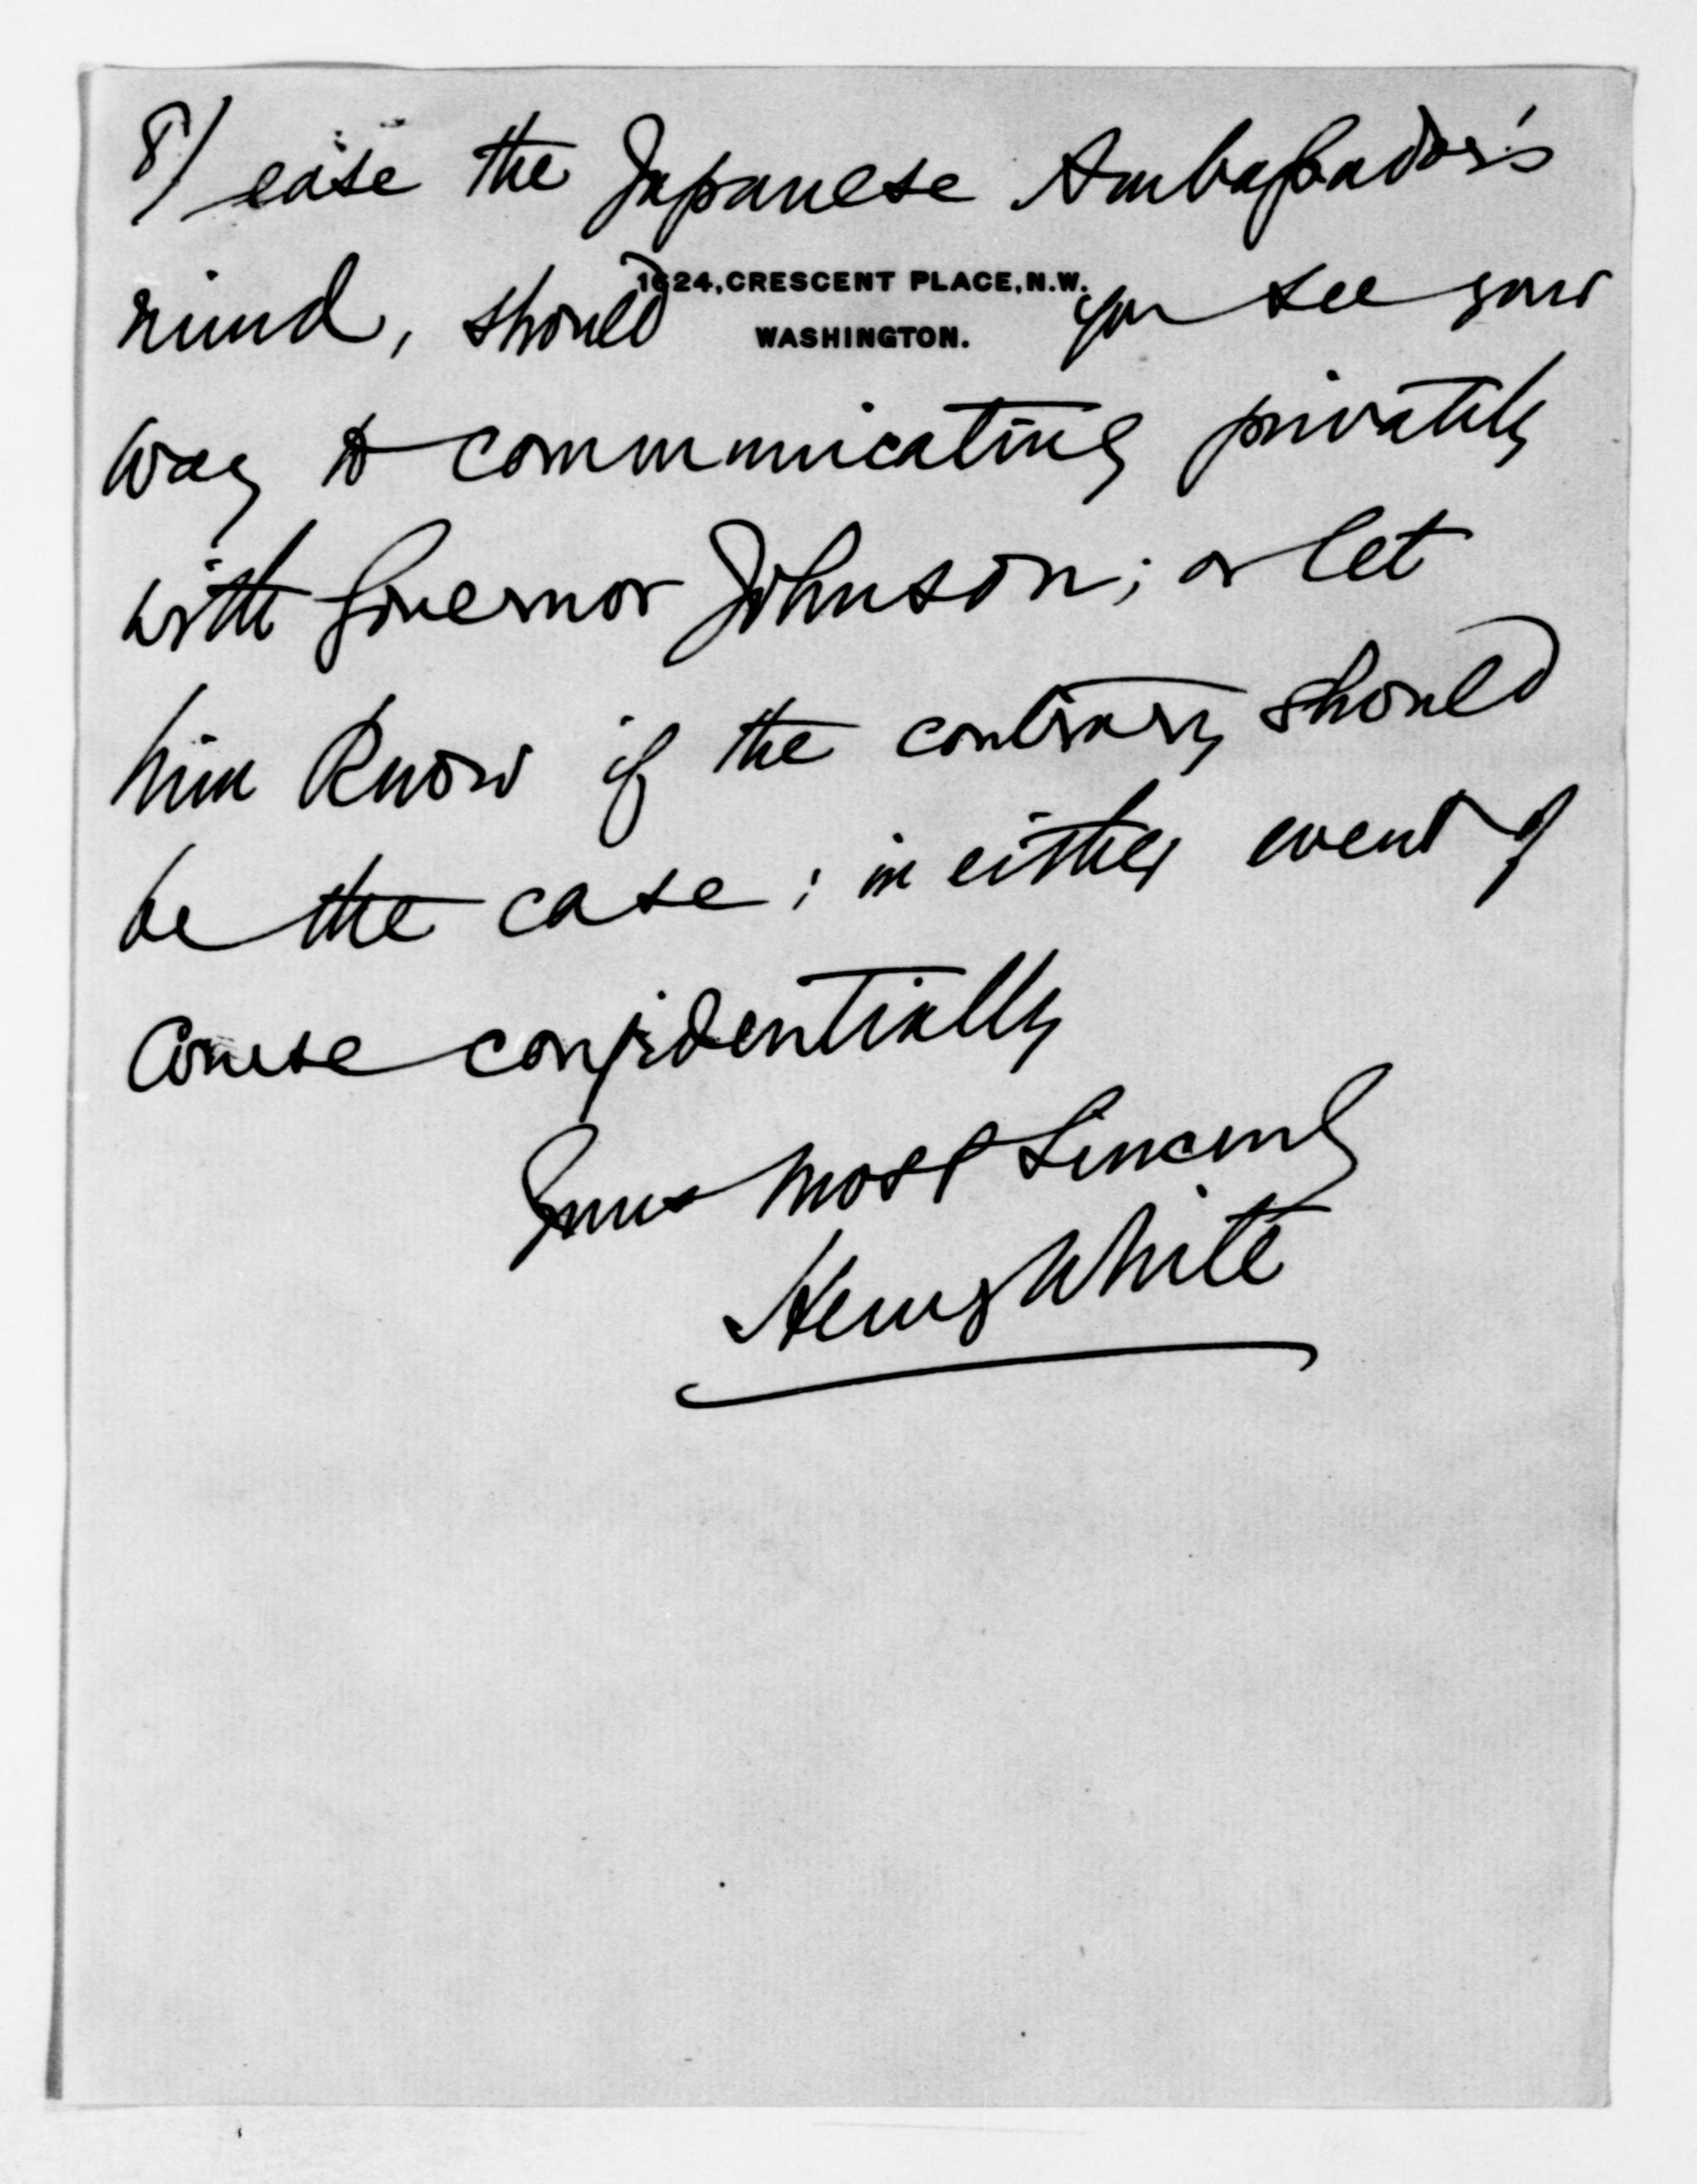 8/ ease the Japanese Ambassador's
1624, CRESCENT PLACE, N.W.
WASHINGTON.
mind, should you see your
way to communicating privately
with Governor Johnson; or let
him know if the contrary should
be the case; in either event of
course confidentially
Yours most sincerely
Henry White